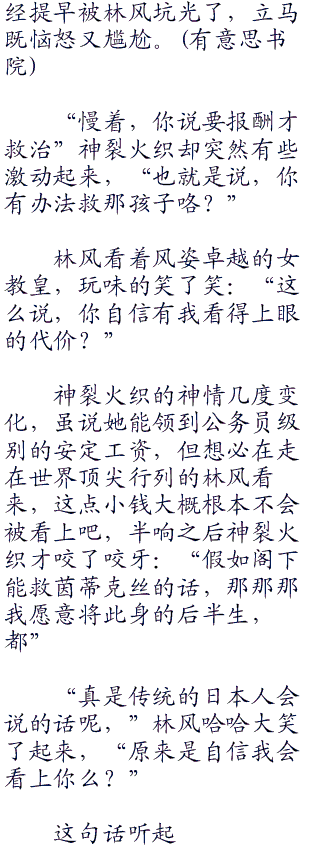 经提早被林风坑光了，立马
既恼怒又尴尬。(有意思书
院)
“慢着，你说要报酬才
救治”神裂火织却突然有些
激动起来，“也就是说，你
有办法救那孩子咯？”
林风看着风姿卓越的女
教皇，玩味的笑了笑：“这
么说，你自信有我看得上眼
的代价？”
神裂火织的神情几度变
化，虽说她能领到公务员级
别的安定工资，但想必在走
在世界顶尖行列的林风看
来，这点小钱大概根本不会
被看上吧，半响之后神裂火
织才咬了咬牙：“假如阁下
能救茵蒂克丝的话，那那那
我愿意将此身的后半生，
都”
“真是传统的日本人会
说的话呢，”林风哈哈大笑
了起来，“原来是自信我会
看上你么？”
这句话听起